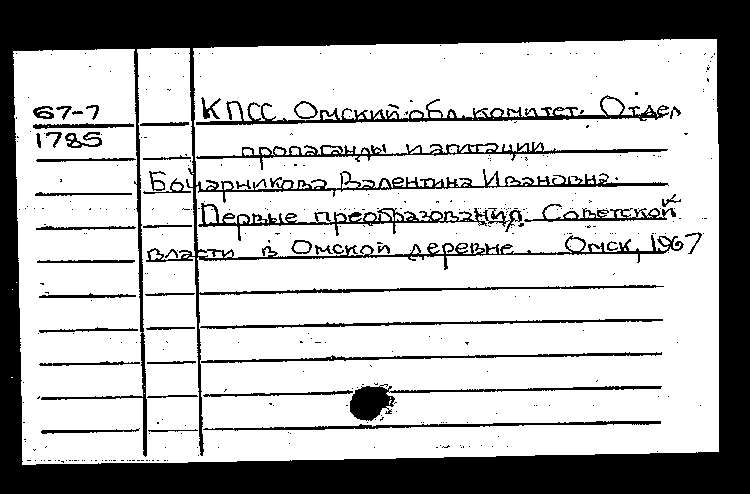 67-7 КПСС. Омский обл. комитет. Отдел
1785 пропаганды и агитации.
Бочарникова, Валентина Ивановна.
Первые преобразования Советской
власти в Омской деревне. Омск, 1967